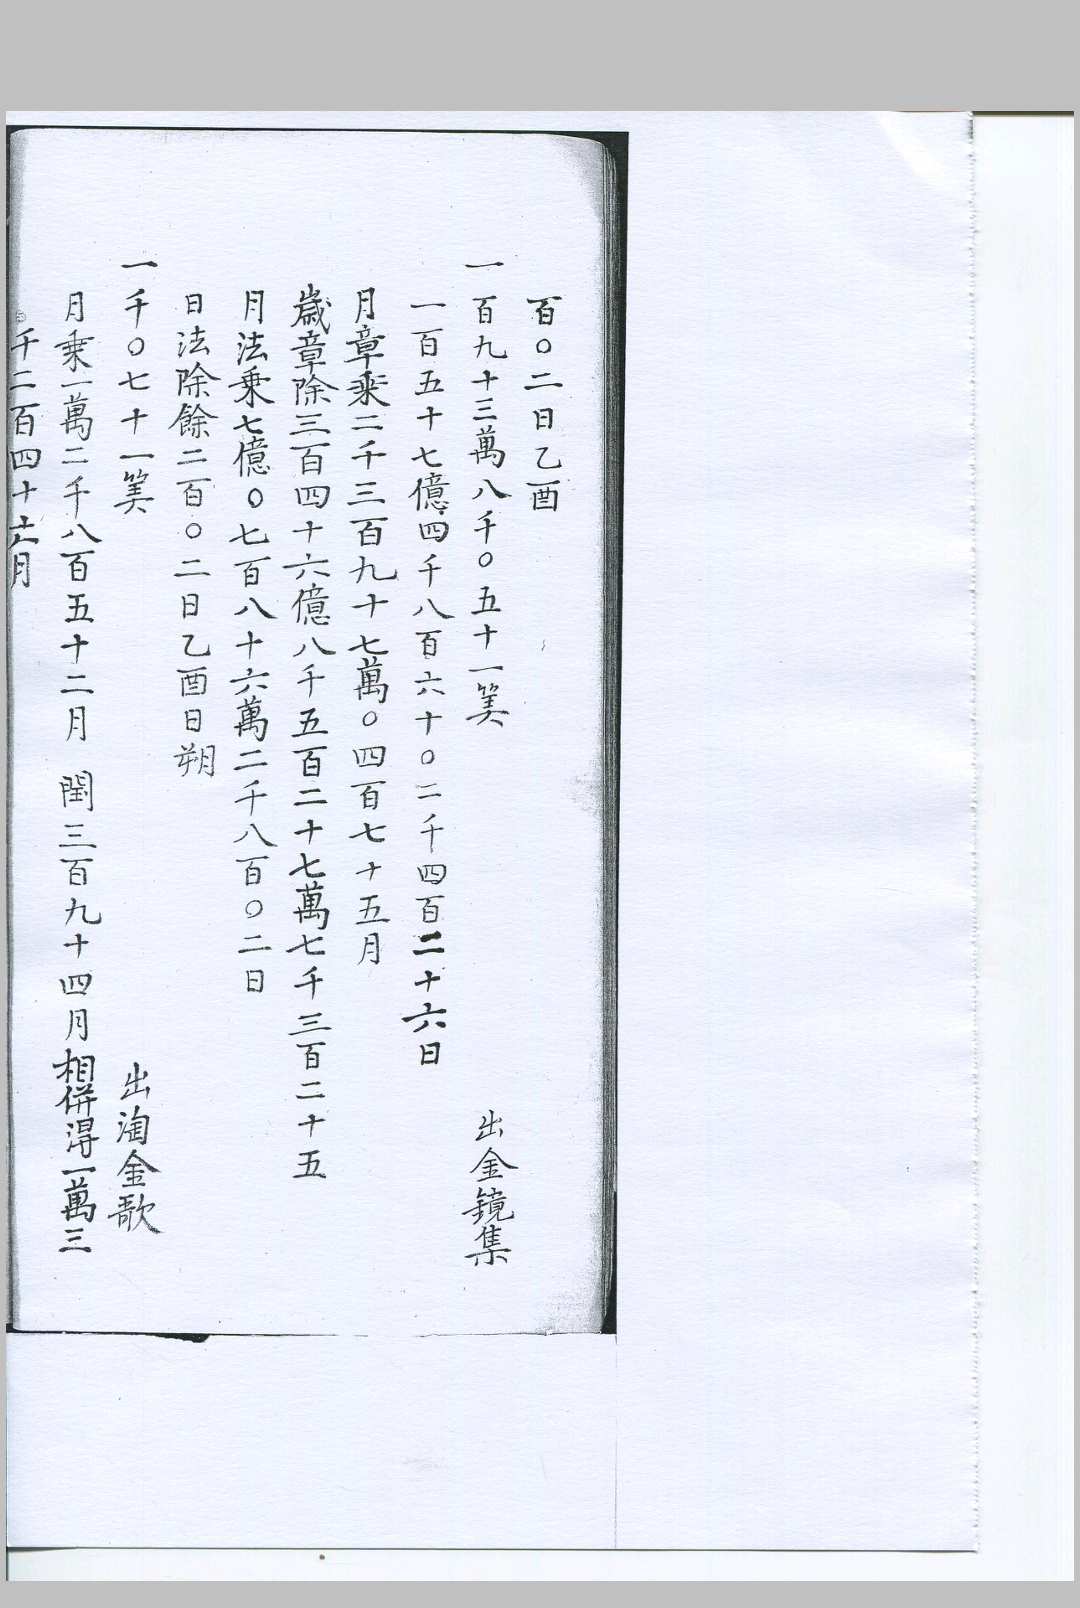 百〇二日乙酉
一百九十三萬八千〇五十一筭 出金鏡集
一百五十七億四千八百六十〇二千四百二十六日
月章乘二千三百九十七萬〇四百七十五月
歲章除三百四十六億八千五百二十七萬七千三百二十五
月法乘七億〇七百八十六萬二千八百〇二日
日法除餘二百〇二日乙酉日朔
一千〇七十一筭 出淘金歌
月乘一萬二千八百五十二月 閏三百九十四月相併得一萬三
千二百四十六月